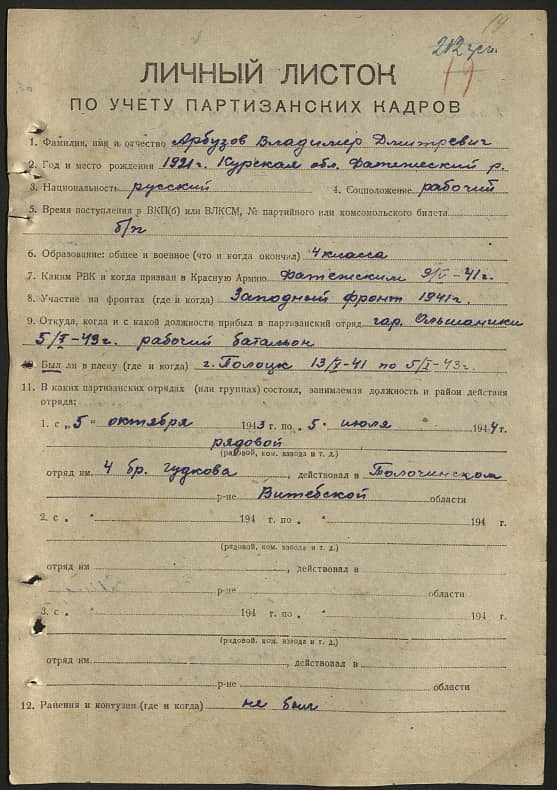 14
212
19
ЛИЧНЫЙ ЛИСТОК
ПО УЧЕТУ ПАРТИЗАНСКИХ КАДРОВ
1. Фамилия, имя и отчество Арбузов Владимир Дмитревич
2. Год и место рождения 1921 г. Курская обл. Фатежский р.
3. Национальность русский 4. Соцположение рабочий
5. Время поступления в ВКП(б) или ВЛКСМ, № партийного или комсомольского билета
б/п
6. Образование: общее и военное (что и когда окончил) 4 класса
7. Каким РВК и когда призван в Красную Армию Фатежским 9/V-41г.
8. Участие на фронтах (где и когда) Западный фронт 1941г.
9. Откуда, когда и с какой должности прибыл в партизанский отряд гар. Ольшаники
5/X-43г. рабочий батальон
10. Был ли в плену (где и когда) г. Полоцк 13/ -41 по 5/X-43г.
11. В каких партизанских отрядах (или группах) состоял, занимаемая должность и район действия
отряда:
1. с „5" октября 1943 г. по „5" июля 1944 г.
рядовой
(рядовой, ком. взвода и т. д.)
отряд им. 4 бр. Гудкова, действовал в Толочинском
р-не Витебской области
2. с „ " 194 г. по „ " 194 г.
(рядовой, ком. взвода и т. д.)
отряд им , действовал в
р-не области
3. с „ " 194 г. по „ " 194 г.
(рядовой, ком. взвода и т. д.)
отряд им. , действовал в
р-не области
12. Ранения и контузии (где и когда) не был